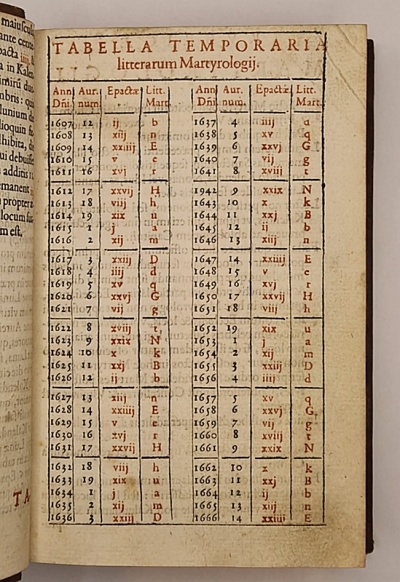 TABELLA TEMPORARIA
litterarum Martyrologij.
Anni Aur. Epactæ Litt. Anni Aur. Epactæ Litt.
Dñi. num. Mart. Dñi. num. Mart.
1607 12 ij b 1637 4 iiij d
1608 13 xiij n 1638 5 xv q
1609 14 xxiiij E 1639 6 xxvj G
1610 15 v e 1640 7 vij g
1611 16 xvj r 1641 8 xviij t
1612 17 xxvij H 1942 9 xxix N
1613 18 viij h 1643 10 x k
1614 19 xix u 1644 11 xxj B
1615 1 j a 1645 12 ij b
1616 2 xij m 1646 13 xiij n
1617 3 xxiij D 1647 14 xxiiij E
1618 4 iiij d 1648 15 v e
1619 5 xv q 1649 16 xvj r
1620 6 xxvj G 1650 17 xxvij H
1621 7 vij g 1651 18 viij h
1622 8 xviij t 1652 19 xix u
1623 9 xxix N 1653 1 j a
1624 10 x k 1654 2 xij m
1625 11 xxj B 1655 3 xxiij D
1626 12 ij b 1656 4 iiij d
1627 13 xiij n 1657 5 xv q
1628 14 xxiiij E 1658 6 xxvj G
1629 15 v e 1659 7 vij g
1630 16 xvj r 1660 8 xviij t
1631 17 xxvij H 1661 9 xxix N
1632 18 viij h 1662 10 x k
1633 19 xix u 1663 11 xxj B
1634 1 j a 1664 12 ij b
1635 2 xij m 1665 13 xiij n
1636 3 xxiij D 1666 14 xxiiij E